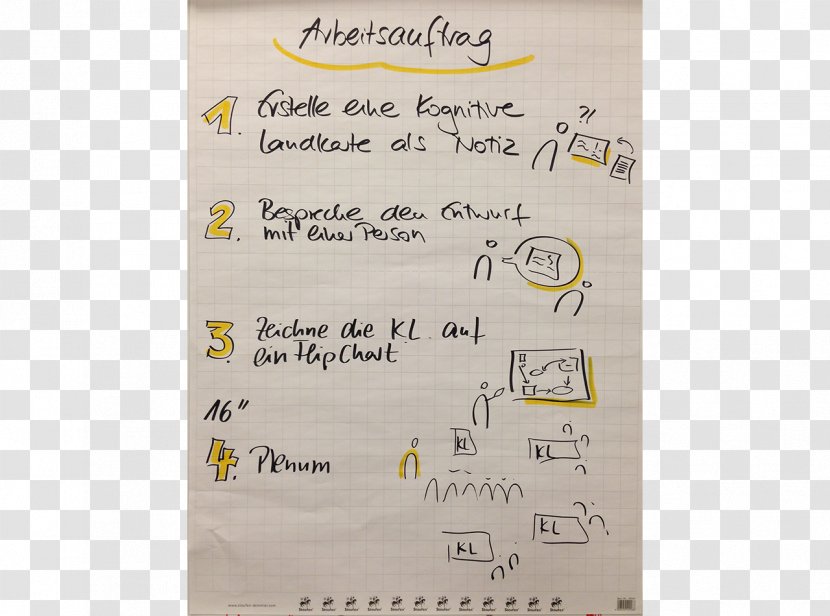 Arbeitsauftrag
1. Erstelle eine Kognitive
Landkarte als Notiz
?!
2. Bespreche den Entwurf
mit einer Person
3. Zeichne die KL auf
ein FlipChart
16"
4. Plenum
KL
KL
KL
KL